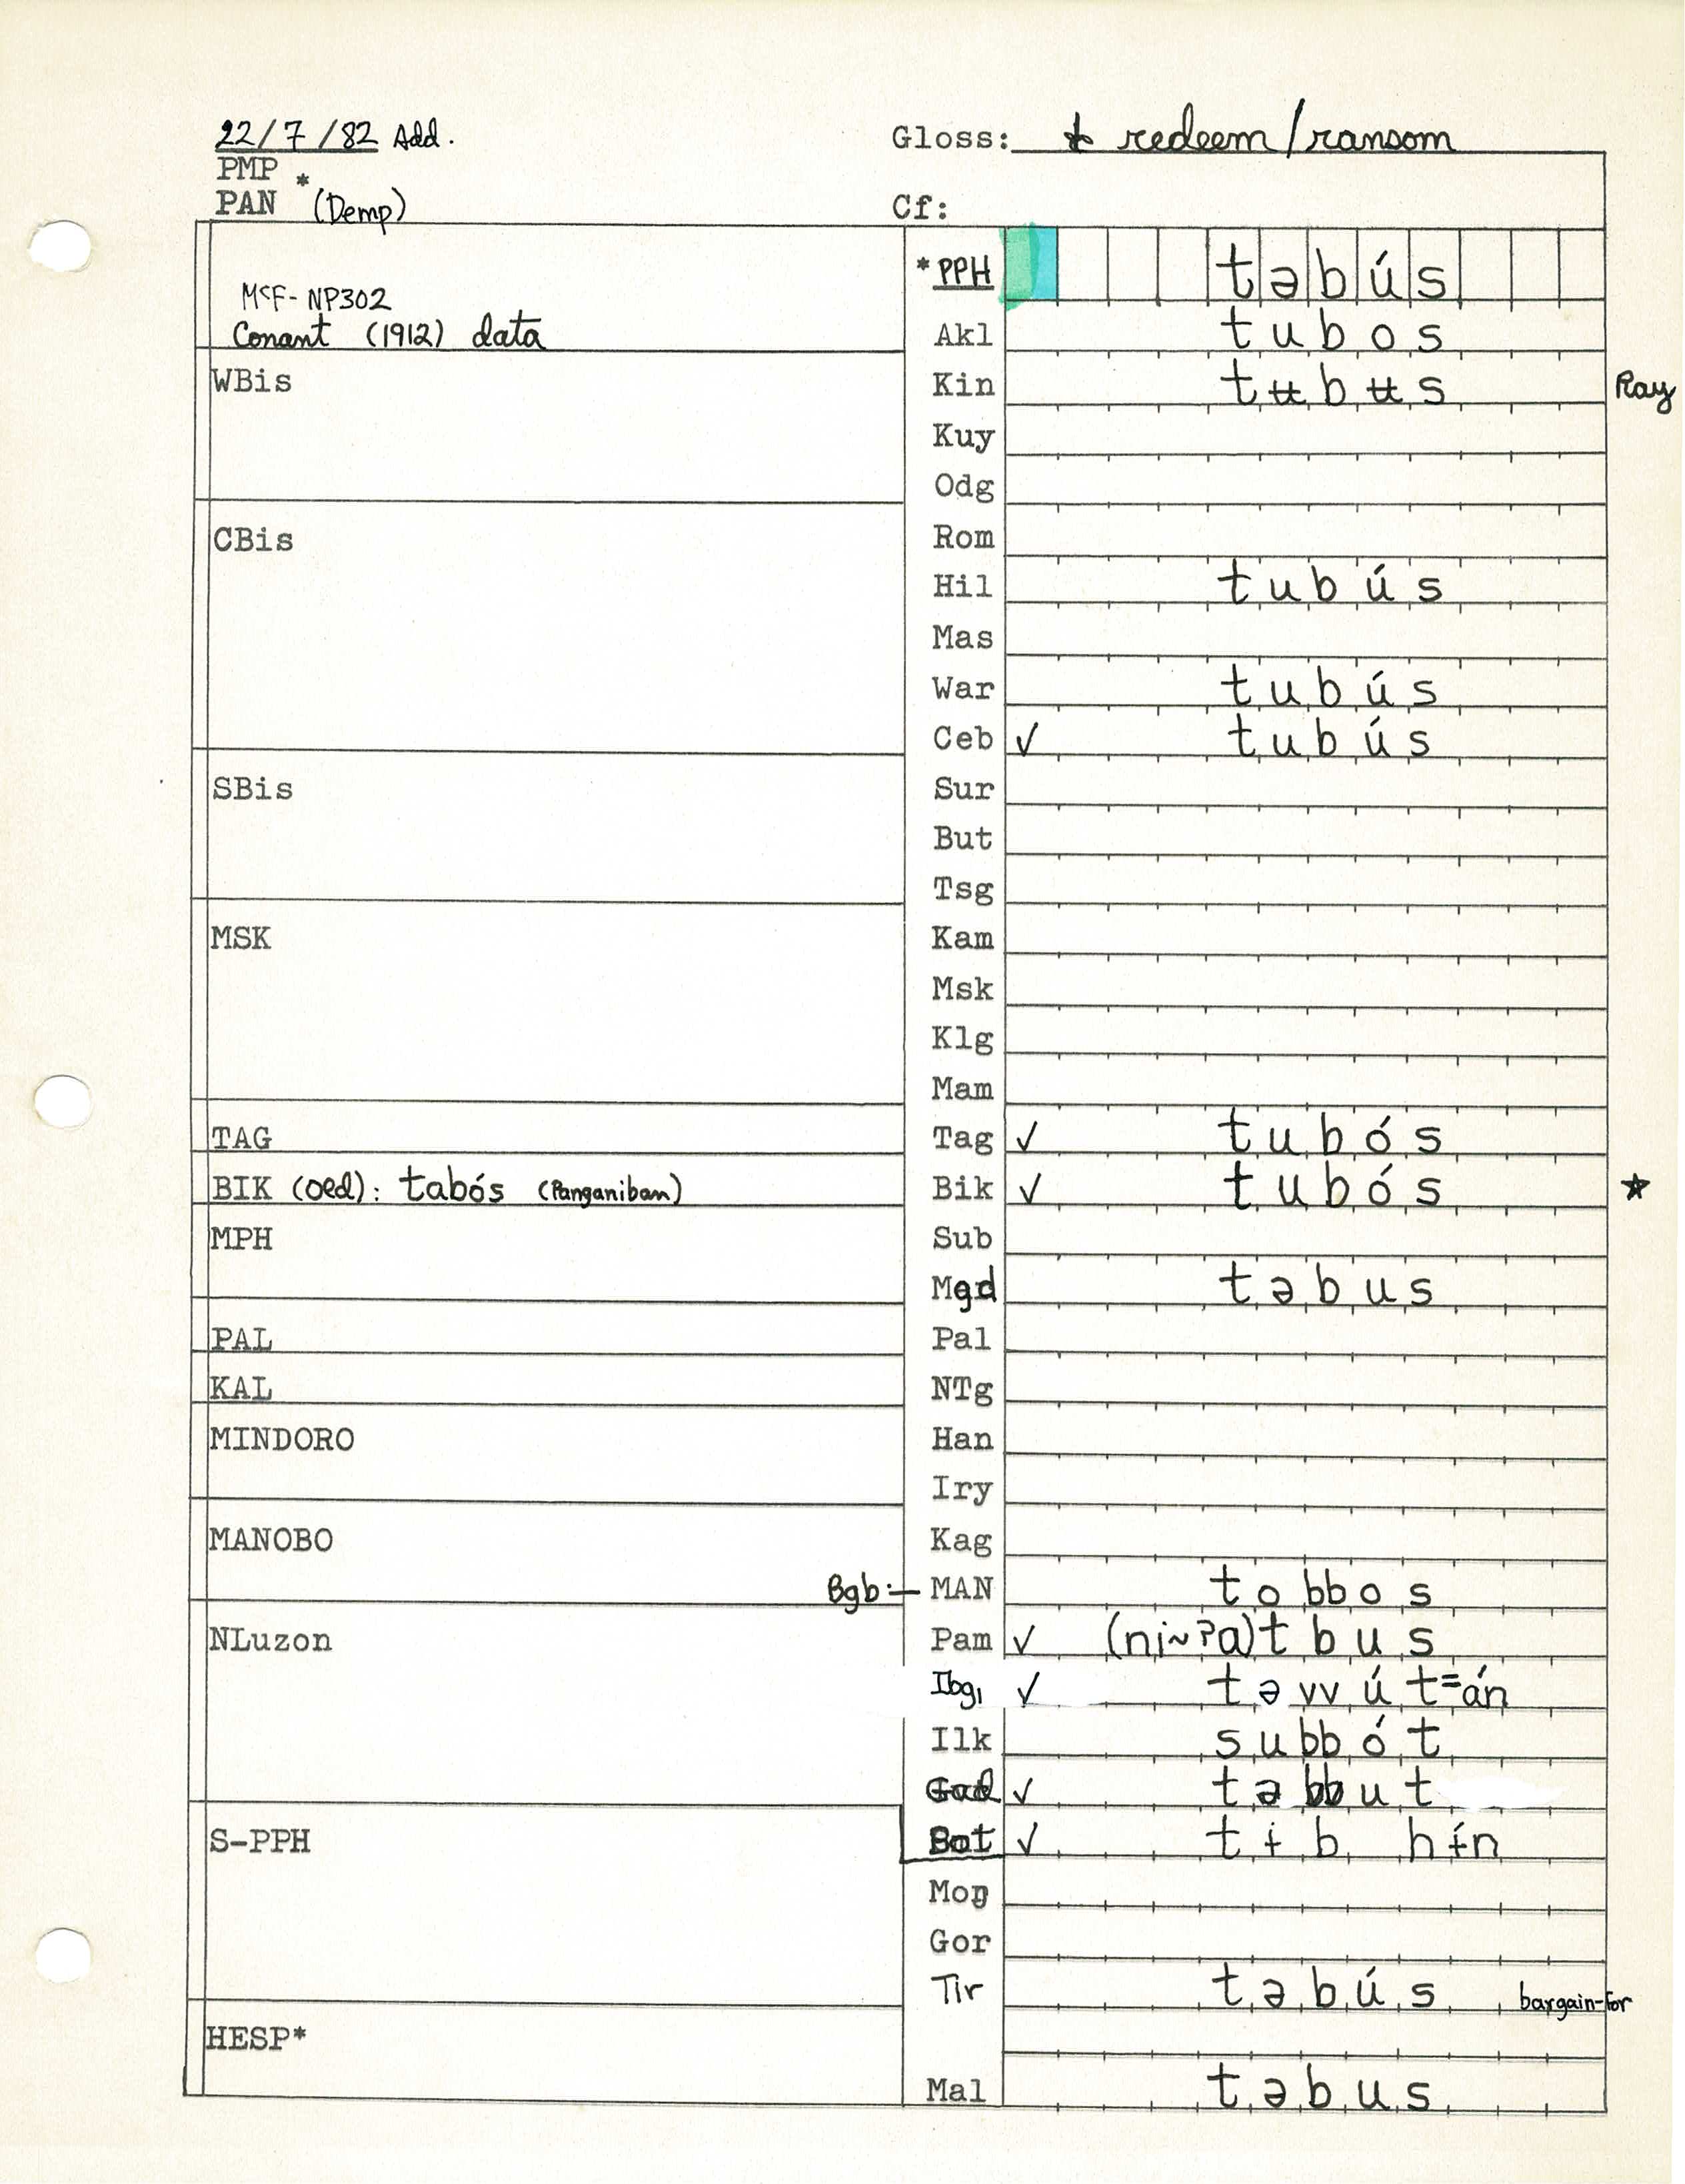 22/7/82 Add.
Gloss: t redeem/ransom
PMP *
PAN (Demp)
Cf:
*PPH təbús
McF-NP302
Conant (1912) data
Akl tubos
WBis
Kin tʉbʉs Ray
Kuy
Odg
CBis
Rom
Hil tubús
Mas
War tubús
Ceb ✓ tubús
SBis
Sur
But
Tsg
MSK
Kam
Msk
Klg
Mam
TAG
Tag ✓ tubós
BIK (Oed): tabós (Panganiban)
Bik ✓ tubós ★
MPH
Sub
Mgd təbus
PAL
Pal
KAL
NTg
MINDORO
Han
Iry
MANOBO
Kag
Bgb:— MAN tobbos
NLuzon
Pam ✓ (ni~ʔa)t bus
Ibg, ✓ təvvút=án
Ilk subbót
Gad ✓ təbbut
S-PPH
Bot ✓ tɨb hɨ́n
Moŋ
Gor
Tir təbús bargain-for
HESP*
Mal təbus